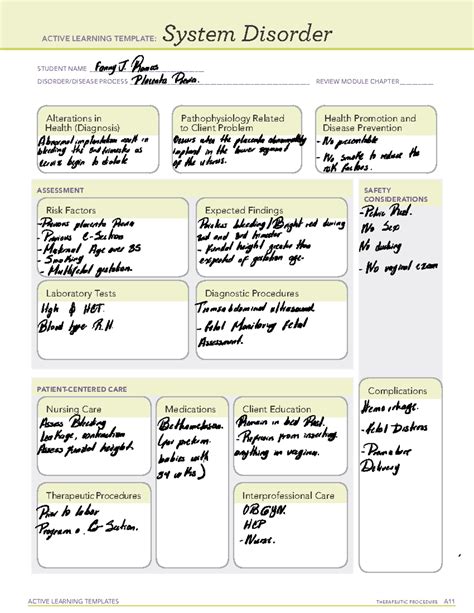 ACTIVE LEARNING TEMPLATE: System Disorder
STUDENT NAME Fanny J. Ramos
DISORDER/DISEASE PROCESS Placenta Previa REVIEW MODULE CHAPTER
Alterations in
Health (Diagnosis)
Abnormal implantation result in
bleeding the 3rd trimester as
cervix begin to dilate
Pathophysiology Related
to Client Problem
Occurs when the placenta abnormally
implant in the lower segment
of the uterus.
Health Promotion and
Disease Prevention
- No preventable
- No smoke to reduce the
risk factors.
ASSESSMENT
SAFETY
CONSIDERATIONS
Risk Factors
- Previous placenta previa
- Previous C-Section
- Maternal Age over 35
- Smoking
- Multifetal gestation.
Expected Findings
Painless bleeding/Bright red during
2nd and 3rd trimester
- Fundal height greater than
expected of gestation age.
- Pelvic Rest.
No Sex
No douching
- No vaginal exam
Laboratory Tests
Hgb & HCT.
Blood type R.H
Diagnostic Procedures
Transabdominal ultrasound
- Fetal Monitoring Fetal
Assessment.
PATIENT-CENTERED CARE
Nursing Care
Assess Bleeding
Leakage, contraction
Assess fundal height.
Medications
Bethamethasone
babies with
34 wks)
Client Education
Remain in bed Rest.
- Refrain from inserting
anything in vagina.
Complications
Hemorrhage.
- Fetal Distress
- Premature
Delivery
Therapeutic Procedures
Prior to labor
Program a C-Section.
Interprofessional Care
OBGYN.
HCP
- Nurse.
ACTIVE LEARNING TEMPLATES THERAPEUTIC PROCEDURE A11